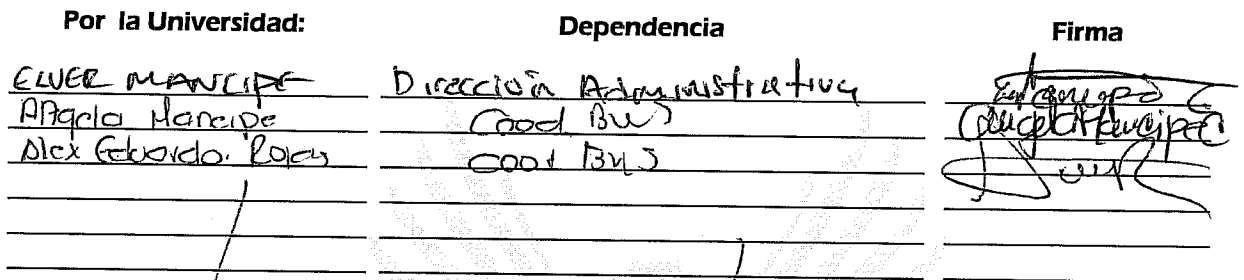 Por la Universidad: Dependencia Firma
ELVER MANCIPE Dirección Administrativa
Angela Mancipe Cood BU Angela Mancipe
Alex Eduardo Rojas Cood BU